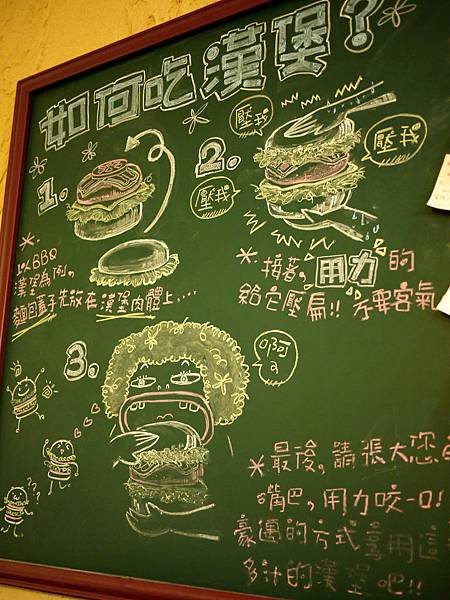 如何吃漢堡?
1.
*. 以BBQ
漢堡為例,
麵包蓋子先放在漢堡肉體上....
2.
壓我
壓我
壓我
*接著,用力的
給它壓扁!! 不要客氣
3.
啊
*最後,請張大您
嘴巴,用力咬一口!
豪邁的方式享用這
多汁的漢堡吧!!
???